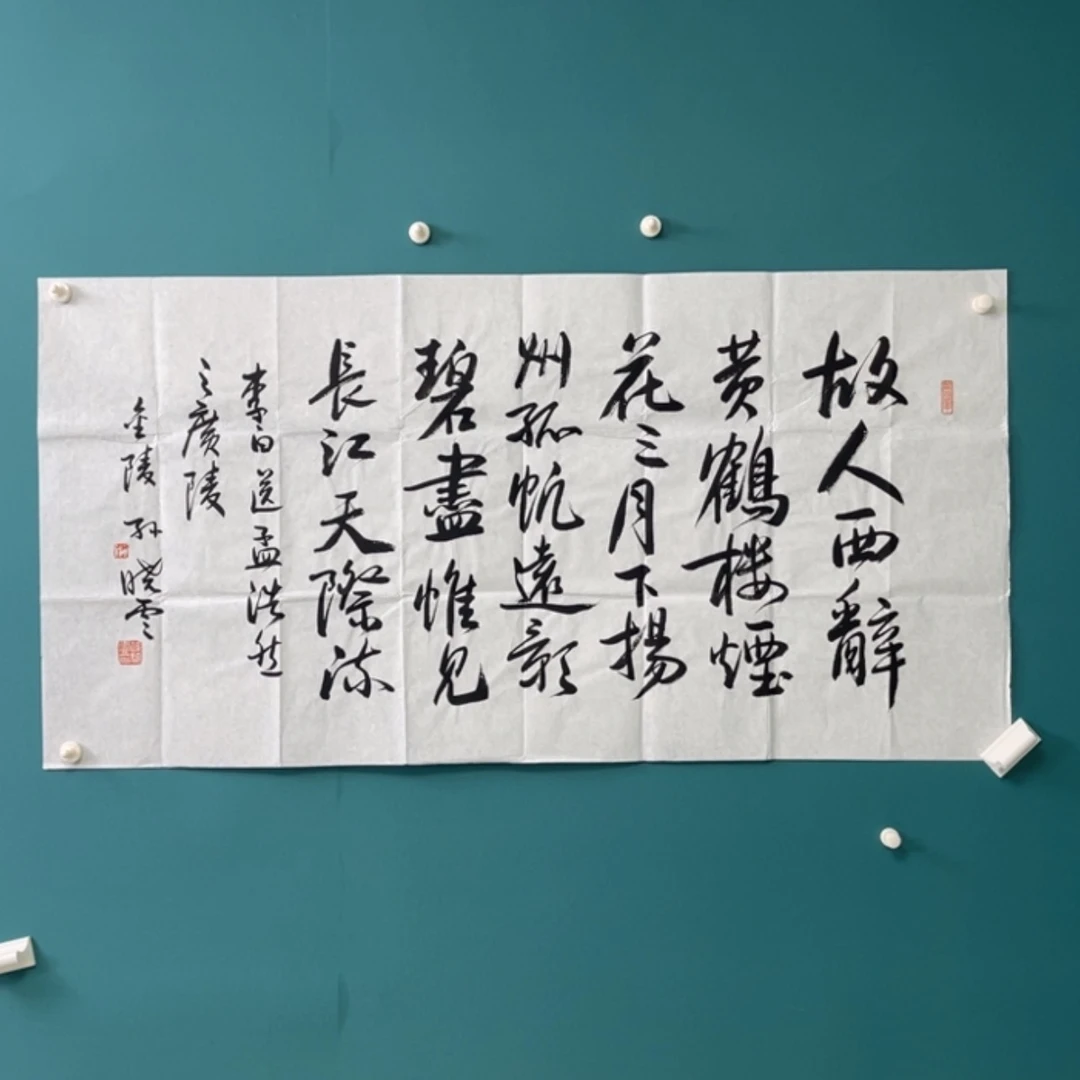 故人西辭
黄鶴樓煙
花三月下揚
州孤帆遠影
碧盡惟見
長江天際流
李白送孟浩然
之廣陵
金陵 孙曉雲